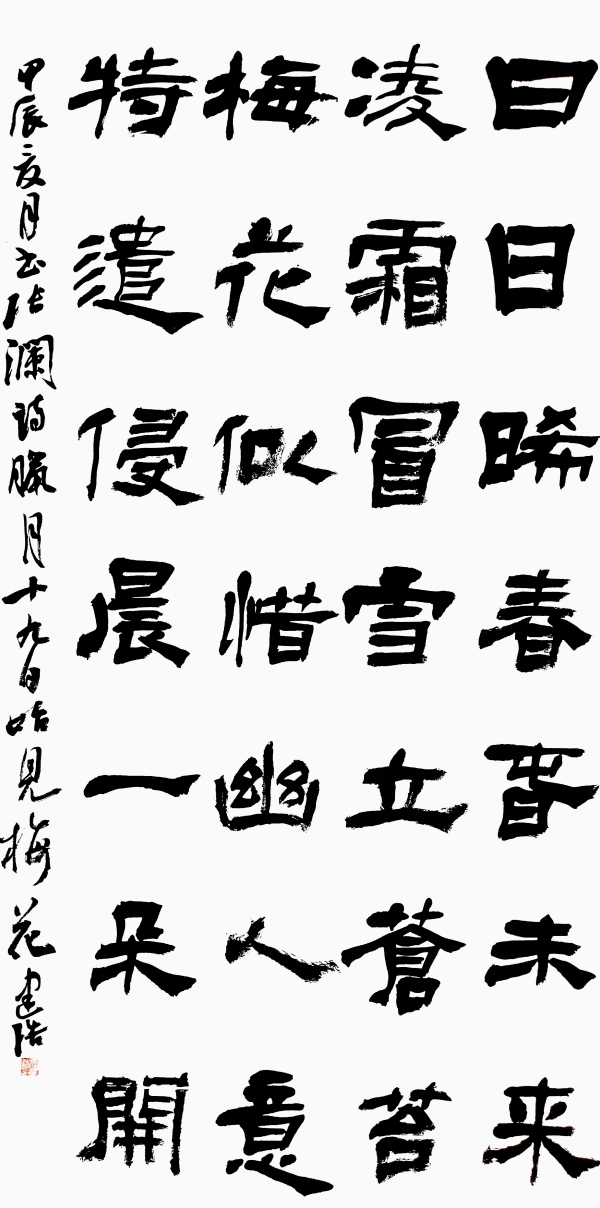 日日晞春春未来
凌霜冒雪立蒼苔
梅花似惜幽人意
特遣侵晨一朵開
甲辰夏月书张澜詩臘月十九日始見梅花建浩